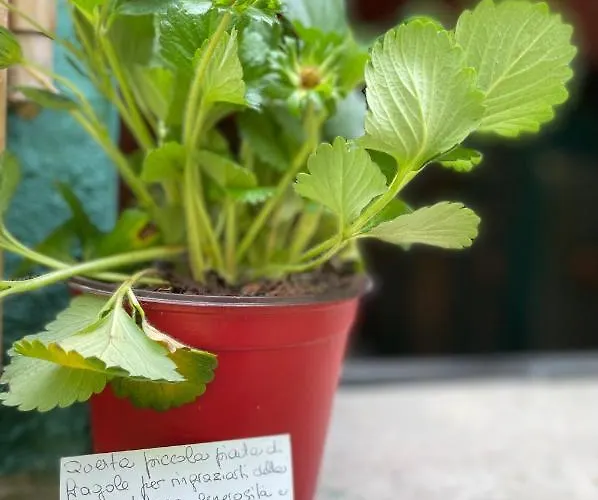 Questa piccola pianta di
fragole per ringraziarti della
generosità e